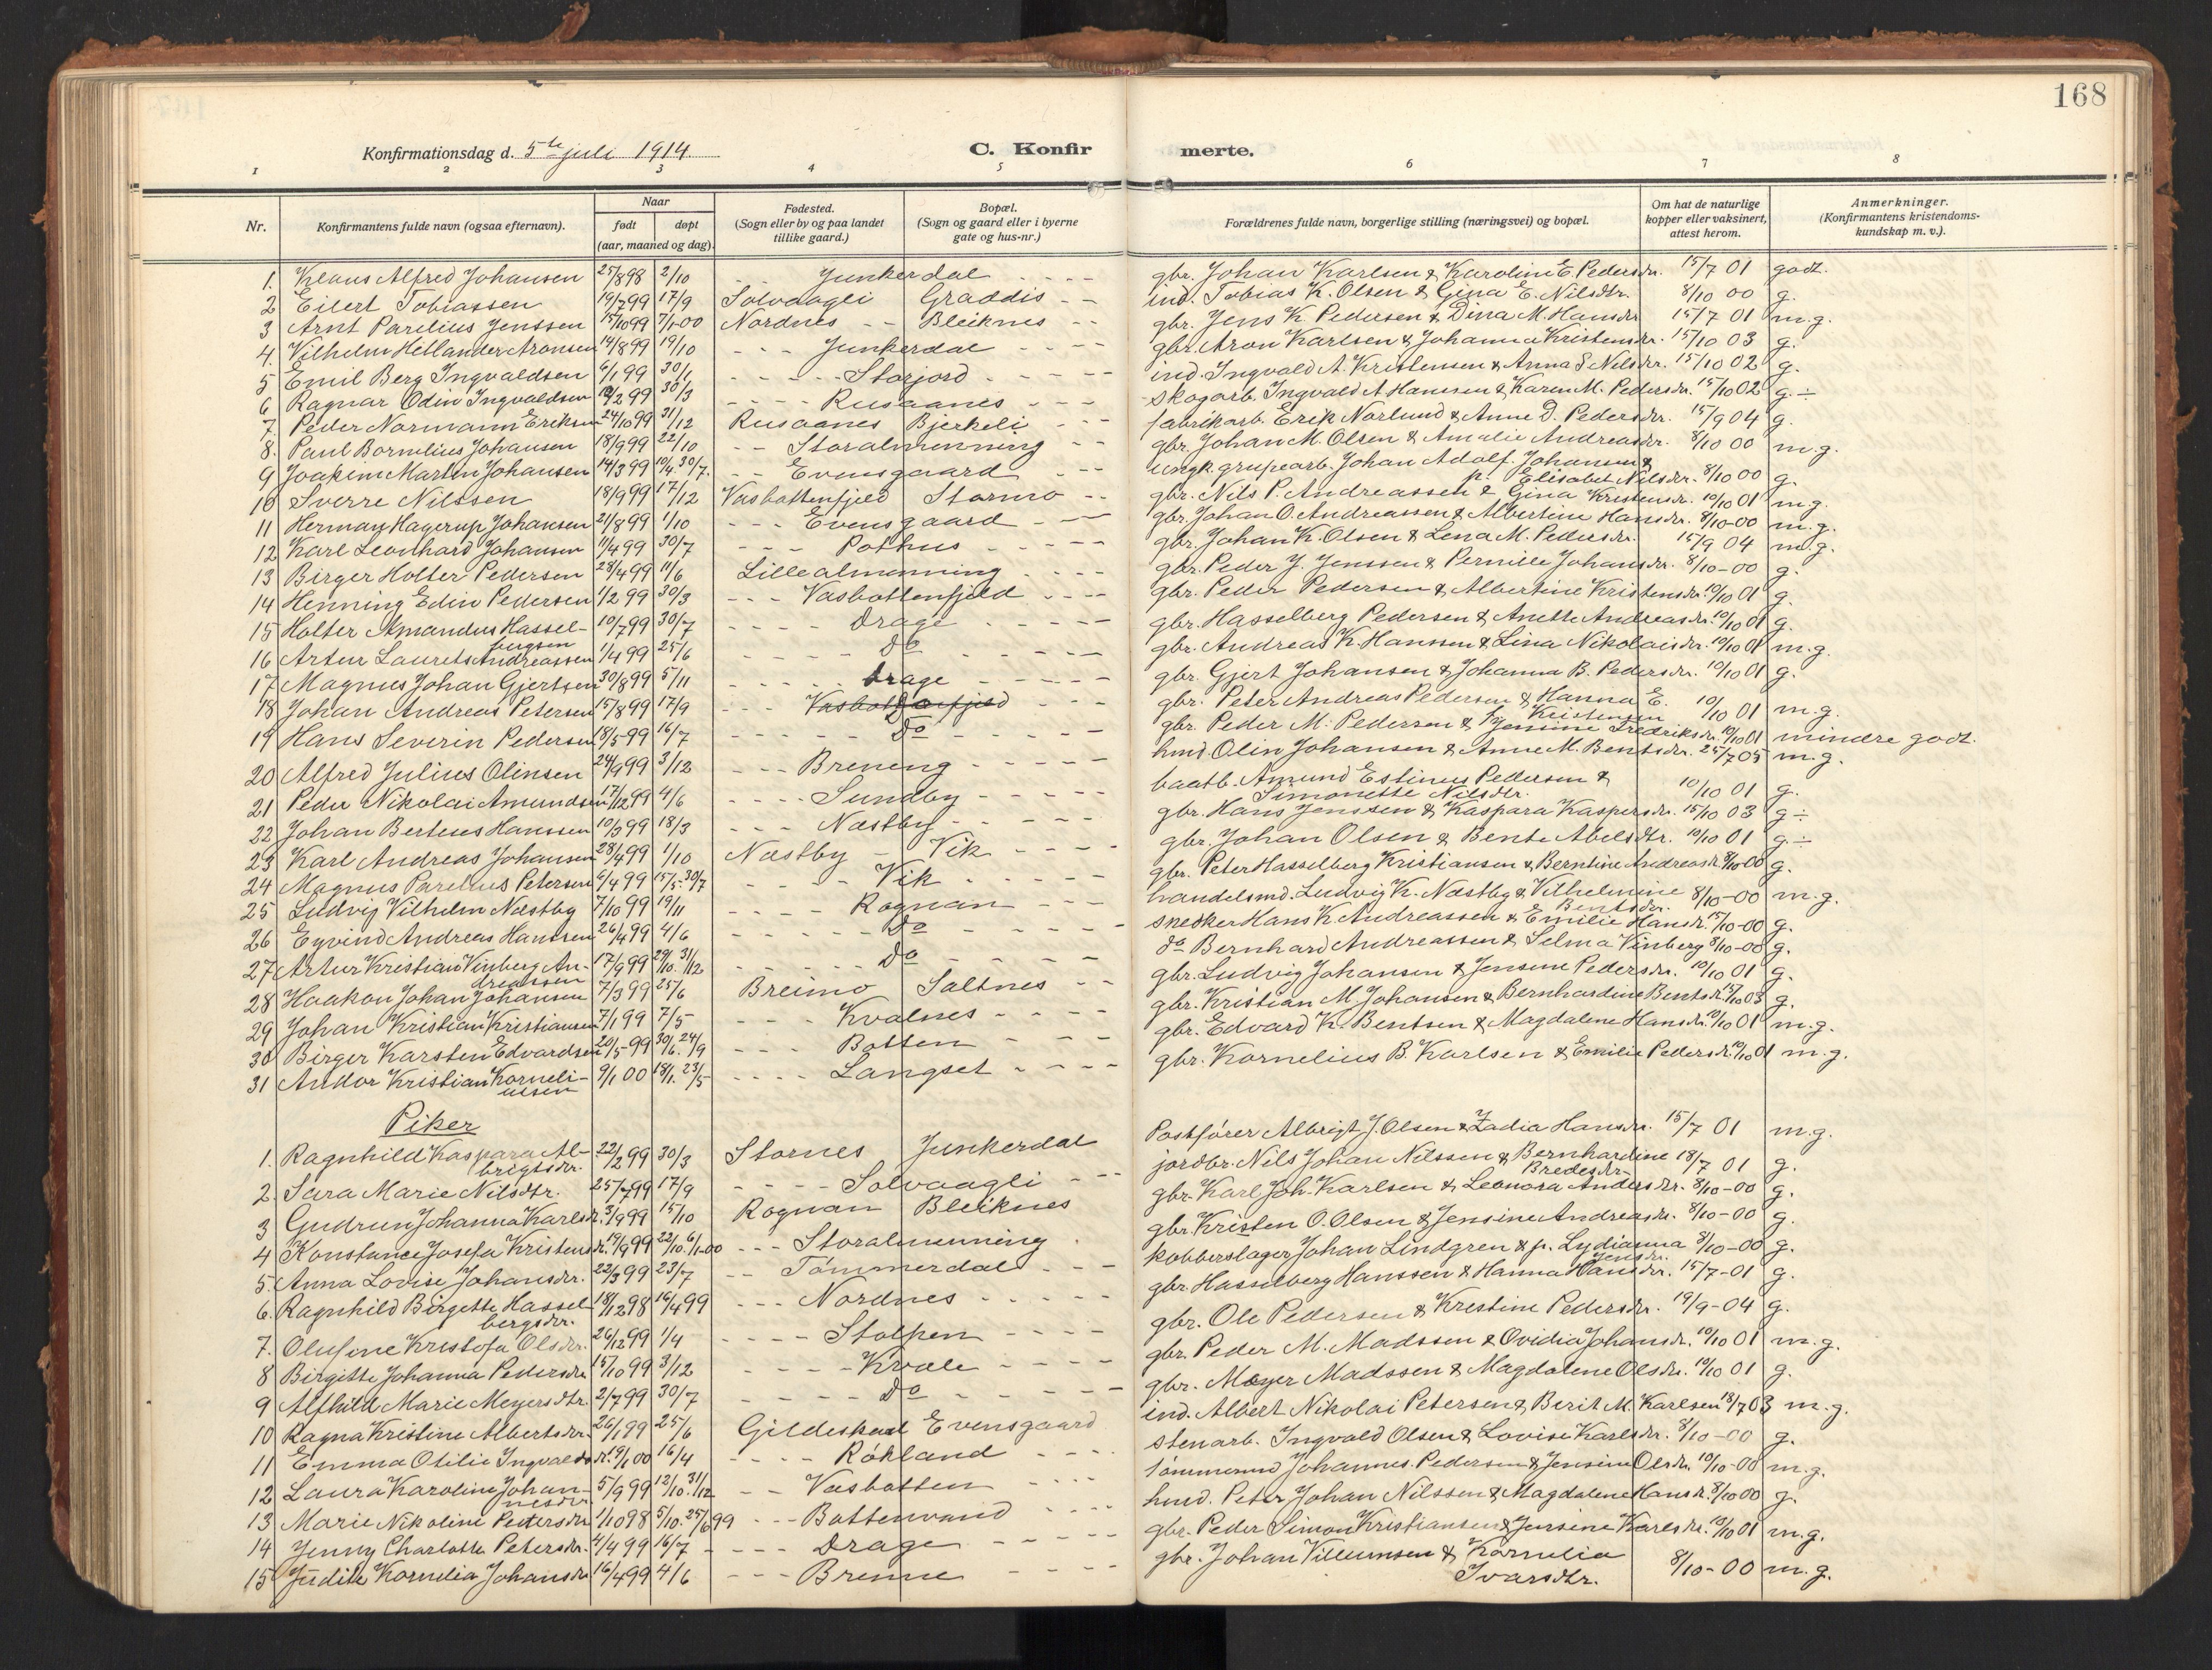 168
Konfirmationsdag d. 5te juli 1914
C. Konfir
merte.
1 2 3 4 5 6 7 8
Nr.
Konfirmantens fulde navn (ogsaa efternavn).
Naar
født døpt
(aar, maaned og dag).
Fødested.
(Sogn eller by og paa landet
tillike gaard.)
Bopæl.
(Sogn og gaard eller i byerne
gate og hus-nr.)
Forældrenes fulde navn, borgerlige stilling (næringsvei) og bopæl.
Om hat de naturlige
kopper eller vaksinert,
attest herom.
Anmerkninger.
(Konfirmantens kristendoms-
kundskap m. v.).
1. Klaus Alfred Johansen 25/8 98 2/10 Junkerdal gbr. Johan Karlsen & Karoline E. Pedersdr. 15/7 01 godt.
2 Eilert Tobiassen 19/7 99 17/9 Solvaagli Graddis ind. Tobias K. Olsen & Gina E. Nilsdtr. 8/10 00 g.
3 Arnt Parelius Jenssen 15/10 99 7/1-00 Nordnes Bleiknes gbr. Jens K. Pedersen & Dina M. Hansdr 15/7 01 m.g.
4. Vilhelm Hetlander Aronsen 14/8 99 19/10 Junkerdal gbr. Aron Karlsen & Johanna Kristensdr. 15/10 03 g.
5 Emil Berg Ingvaldsen 6/1 99 30/1 Storjord ind. Ingvald A. Kristensen & Anna S Nilsdr. 15/10 02 g.
6 Ragnar Odin Ingvaldsen 12/2 99 30/3 Rusaanes skogarb. Ingvald A Hanssen & Karen M. Pedersdr. 15/10 02 g ÷
7 Peder Normann Eriksen 24/10 99 31/12 Rusaanes Bjerkeli fabrikarb. Erik Norlund & Anne D. Pedersdr. 15/9 04 g.
8. Paul Bornelius Johansen 18/9 99 22/10 Storalmenning gbr. Johan M. Olsen & Amalie Andreasdr. 8/10 00 m.g.
9 Joakim Martin Johansen 14/3 99 10/4. 30/7. Evensgaard ungk. grubearb. Johan Adolf Johansen &
p. Elisabet Nilsdr. 8/10 00 g.
10 Sverre Nilssen 18/9 99 17/12 Vasbottenfjeld Stormo gbr. Nils P. Andreassen & Gina Kristensdr. 10/10 01 m.g.
11 Herman Hagerup Johansen 21/8 99 1/10 Evensgaard gbr. Johan O. Andreassen & Albertine Hansdr. 8/10-00 m.g.
12 Karl Leonhard Johansen 11/4 99 30/7 Pothus gbr. Johan K. Olsen & Lena M. Pedersdr. 15/9 04 m.g.
13 Birger Holter Pedersen 28/4 99 11/6 Lillealmenning gbr. Peder J. Jenssen & Pernille Johansdr. 8/10-00 g.
14 Henning Edin Pedersen 1/2 99 30/3 Vasbottenfjeld gbr. Peder Pedersen & Albertine Kristensdr. 10/10 01 g.
15 Holter Amandus Hassel-
bergsen 10/7 99 30/7 Drage gbr. Hasselberg Pedersen & Anette Andreasdr. 10/10 01 g.
16 Artur Laurets Andreassen 1/4 99 25/6 Do gbr. Andreas K. Hanssen & Lina Nikolaisdr. 10/10 01 m.g.
17 Magnus Johan Gjertsen 30/8 99 5/11 Drage gbr. Gjert Johansen & Johanna B. Pedersdr. 10/10 01 g.
18 Johan Andreas Petersen 15/8 99 17/9 Vasbottenfjeld Do gbr. Peter Andreas Pedersen & Hanna E.
Kristensen 10/10 01 m.g.
19 Hans Severin Pedersen 18/5-99 16/7 Do gbr. Peder M. Pedersen & Jensine Fredriksdr. 10/10 01 mindre godt.
20 Alfred Julius Olinsen 24/9 99 3/12 Breneng hmd. Olin Johansen & Anne M. Bentsdr. 25/7 05 m.g.
21 Peder Nikolai Amundsen 17/12 99 4/6 Sundby baatb. Amund Estinus Pedersen &
Simonette Nilsdtr. 10/10 01 g.
22 Johan Berteus Hanssen 10/3 99 18/3 Nestby gbr. Hans Jenssen & Kaspara Kaspersdr. 15/10 03 g ÷
23 Karl Andreas Johansen 28/4 99 1/10 Nestby Vik gbr. Johan Olsen & Bente Abelsdtr. 10/10 01 g. ÷
24 Magnus Parelius Petersen 6/4 99 15/5-30/7 Vik gbr. Peter Hasselberg Kristiansen & Berntine Andreasdr. 8/10-00 g.
25 Ludvig Vilhelm Nestby 7/10 99 19/11 Rognan handelsmd. Ludvig K. Nestby & Vilhelmine
Bentsdr. 8/10-00 m.g.
26 Eyvind Andreas Hanssen 26/4 99 4/6 Do snedker Hans K. Andreassen & Emilie Hansdr. 15/10-00 g.
27 Artur Kristian Vinberg An-
dreassen 17/9 99 29/10. 31/12 Do do Bernhard Andreassen & Selma Vinberg 8/10-00 g.
28 Haakon Johan Johansen 7/3 99 25/6 Breimo Saltnes gbr. Ludvig Johansen & Jensine Pedersdr. 10/10 01 g.
29 Johan Kristian Kristiansen 7/1 99 7/5 Kvalnes gbr. Kristian M. Johansen & Bernhardine Bentsdr. 15/7 03 g.
30 Birger Karsten Edvardsen 20/5-99 30/6. 24/9 Botten gbr. Edvard K. Bentsen & Magdalene Hansdr. 10/10 01 m.g.
31 Andor Kristian Korneli-
ussen 9/1 00 18/1. 23/5 Langset gbr. Kornelius B. Karlsen & Emilie Pedersdr. 10/10 01 m.g.
Piker
1. Ragnhild Kaspara Al-
brigtsdr. 22/2 99 30/3 Stornes Junkerdal Postfører Albrigt J. Olsen & Zadia Hansdr. 15/7 01 m.g.
2. Sara Marie Nilsdtr. 25/7 99 17/9 Solvaagli jordbr. Nils Johan Nilssen & Bernhardine
Bredesdr. 18/7 01 g.
3 Gudrun Johanna Karlsdr. 3/9 99 15/10 Rognan Bleiknes gbr. Karl Joh. Karlsen & Leonora Andersdr. 8/10-00 g.
4 Konstance Josefa Kristensdr. 14/9 99 22/10. 6/1-00 Storalmenning gbr. Kristen O. Olsen & Jensine Andreasdr. 8/10-00 g.
5. Anna Lovise Johansdr. 22/3 99 23/7 Tømmerdal kobberslager Johan Lindgren & p. Lydianna
Jensdr. 8/10-00 g.
6. Ragnhild Birgette Hassel-
bergsdr. 18/12 98 16/4 99 Nordnes gbr. Hasselberg Hanssen & Hanna Hansdr. 15/7-01 g.
7. Olufine Kristofa Olsdr. 26/12 99 1/4 Stolpen gbr. Ole Pedersen & Kristine Pedersdr. 19/9-04 g.
8 Birgitte Johanna Pedersdr 15/10 99 3/12 Kvæle gbr. Peder M. Madssen & Ovidia Johansdr. 10/10 01 m.g.
9 Alfhild Marie Meyersdtr. 2/7 99 30/7 Do gbr. Meyer Madssen & Magdalene Olsdr. 10/10 01 g.
10 Ragna Kristine Albertsdr. 26/1 99 25/6 Gildeskaal Evensgaard ind. Albert Nikolai Petersen & Berit M. Karlsen 18/7 03 m.g.
11 Emma Otilie Ingvaldsdr. 9/1 00 16/4 Røkland stenarb. Ingvald Olsen & Lovise Karlsdr. 8/10-00 g.
12 Laura Karoline Johan-
nesdr. 5/9 99 12/10. 31/12 Vasbotten tømmermd Johannes Pedersen & Jensine Olsdr. 10/10-00 m.g.
13 Marie Nikoline Petersdr 1/10 98 5/10. 25/6 99 Bottenvand hmd. Peter Johan Nilssen & Magdalene Hansdr. 8/10 00 g.
14 Jenny Charlotte Petersdr. 4/4 99 16/7 Drage gbr. Peder Simon Kristiansen & Jensine Karlsdr. 10/10 01 m.g.
15 Judite Kornelia Johansdr 16/4 99 4/6 Brenne gbr. Johan Villumsen & Kornelia
Ivarsdtr. 8/10-00 m.g.